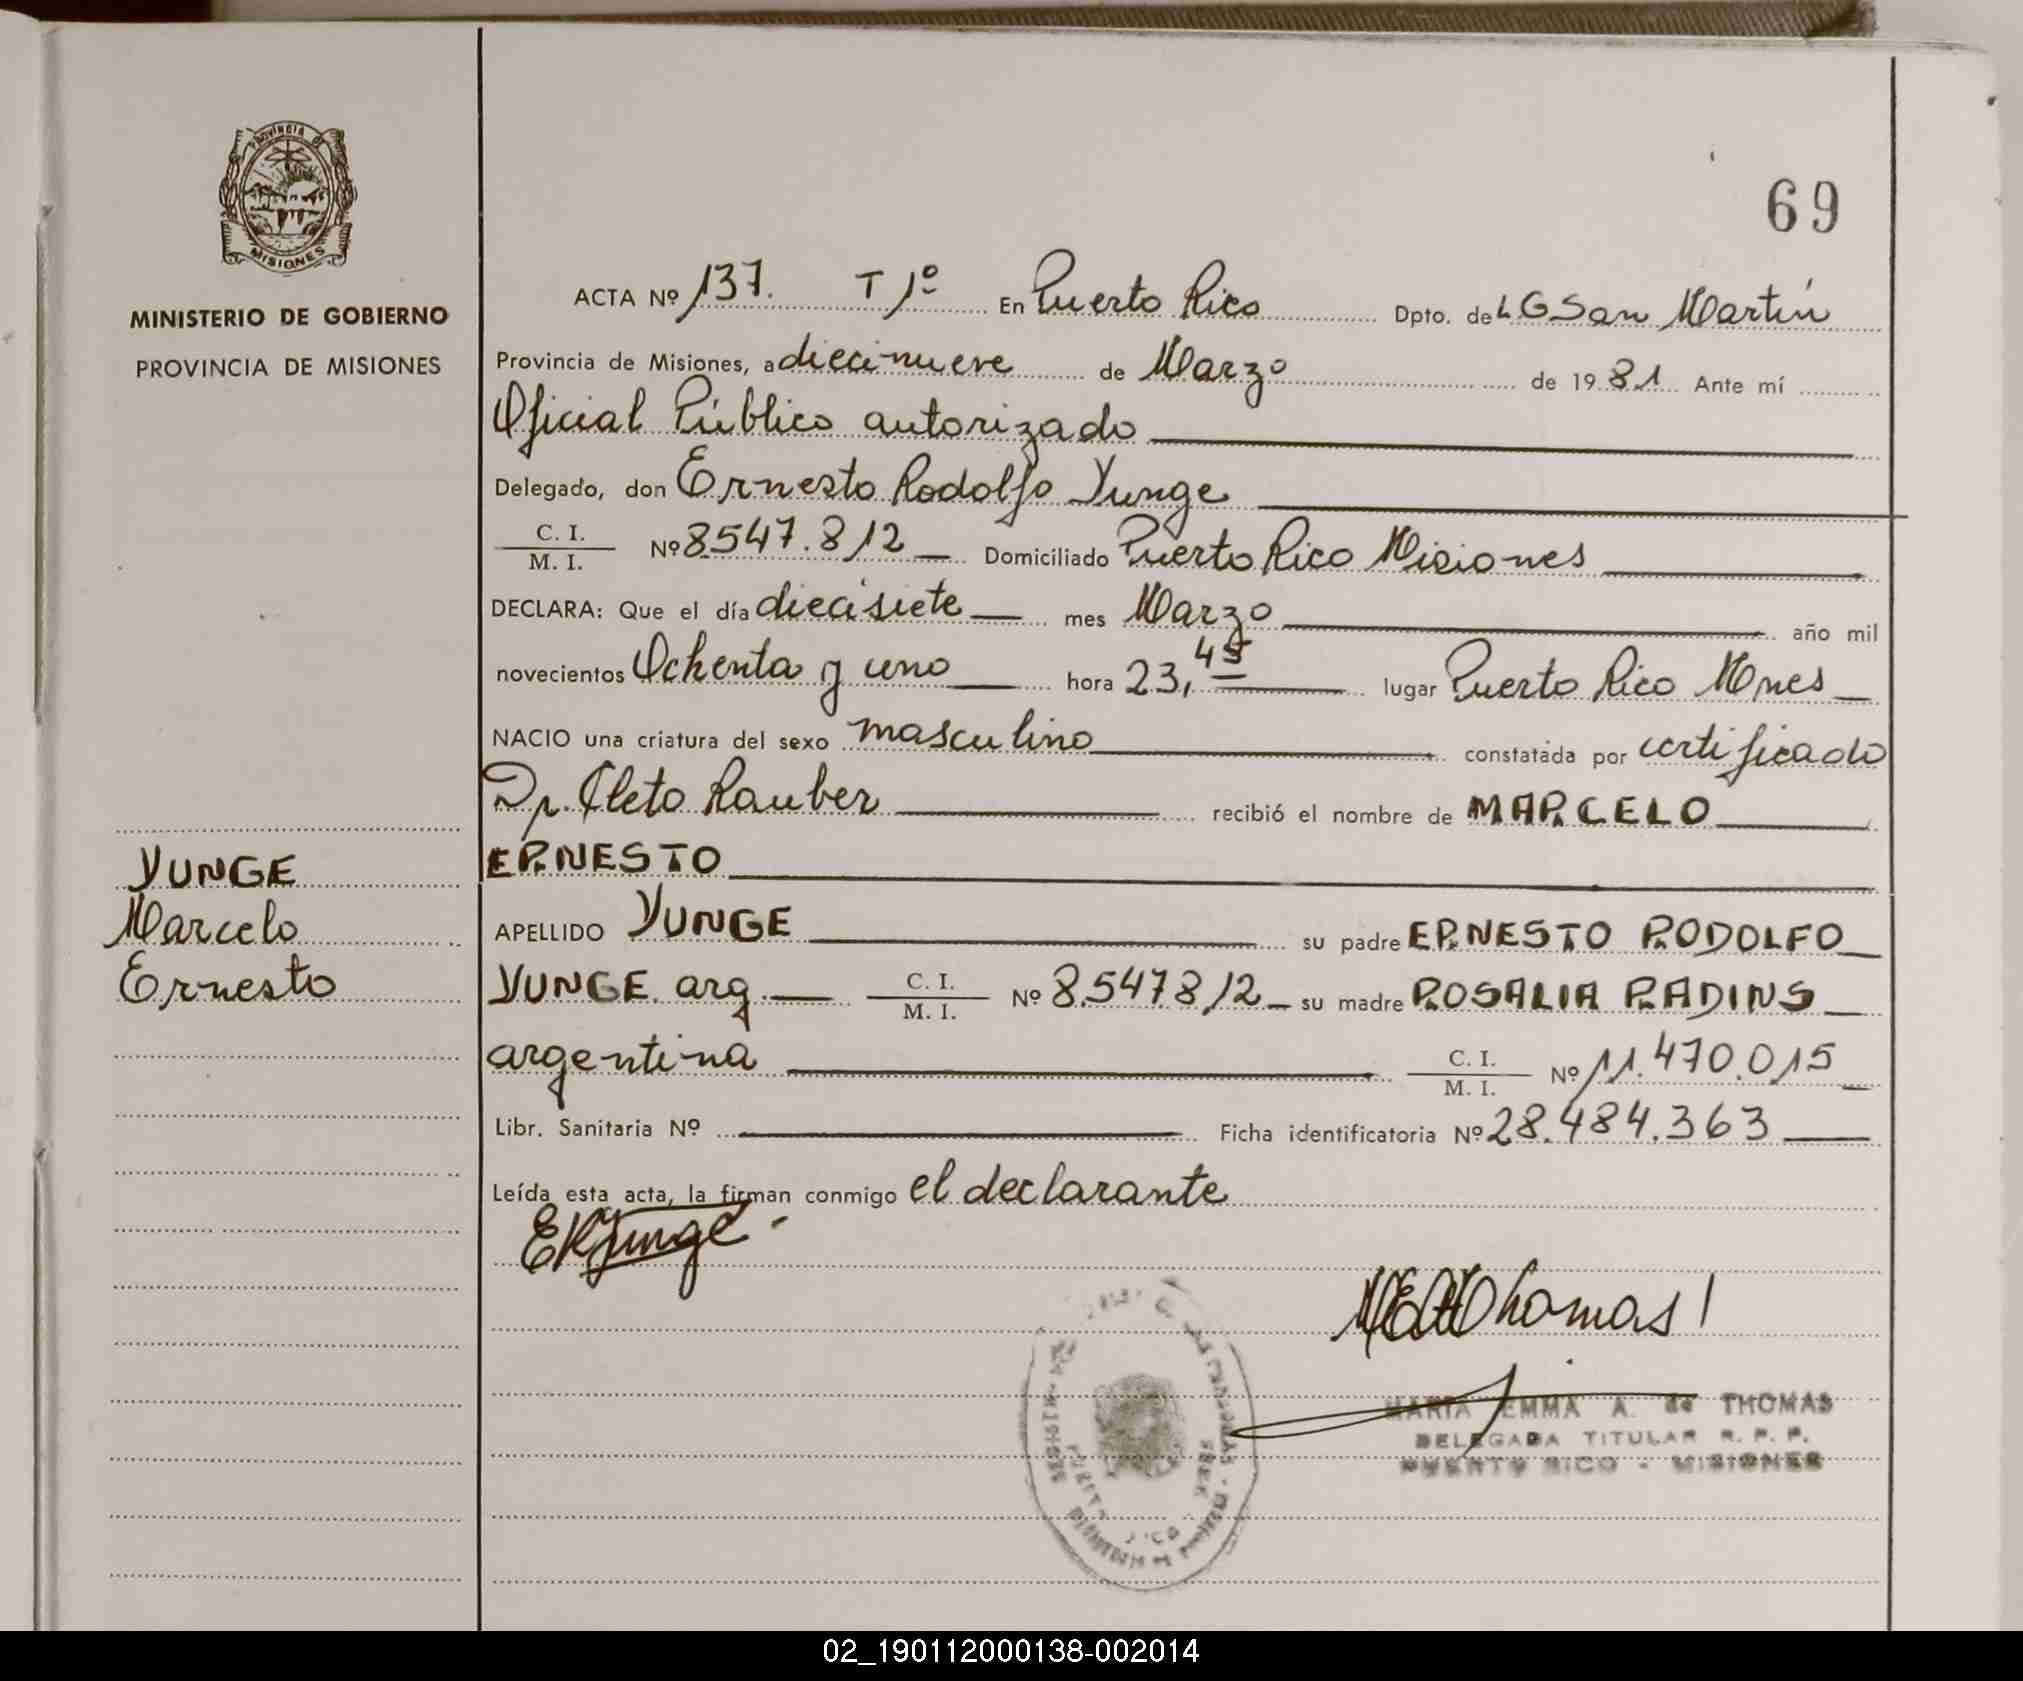 PROVINCIA DE
MISIONES
MINISTERIO DE GOBIERNO
PROVINCIA DE MISIONES
YUNGE
Marcelo
Ernesto
69
ACTA Nº 137. T 1º En Puerto Rico Dpto. de L G San Martín
Provincia de Misiones, a diecinueve de Marzo de 1981 Ante mí
Oficial Público autorizado
Delegado, don Ernesto Rodolfo Yunge
C. I.
M. I.
Nº 8547.812 Domiciliado Puerto Rico Misiones
DECLARA: Que el día diecisiete mes Marzo año mil
novecientos Ochenta y uno hora 23,45 lugar Puerto Rico Mnes
NACIO una criatura del sexo masculino constatada por certificado
Dr. Cleto Rauber recibió el nombre de MARCELO
ERNESTO
APELLIDO YUNGE su padre ERNESTO RODOLFO
YUNGE. arg. C. I. M. I. Nº 8.547812 su madre ROSALIA RADINS
argentina C. I. M. I. Nº 11.470.015
Libr. Sanitaria Nº Ficha identificatoria Nº 28.484.363
Leída esta acta, la firman conmigo el declarante
ERYunge
MEAThomas
MARIA EMMA A. de THOMAS
DELEGADA TITULAR R. P. P.
PUERTO RICO - MISIONES
02_190112000138-002014